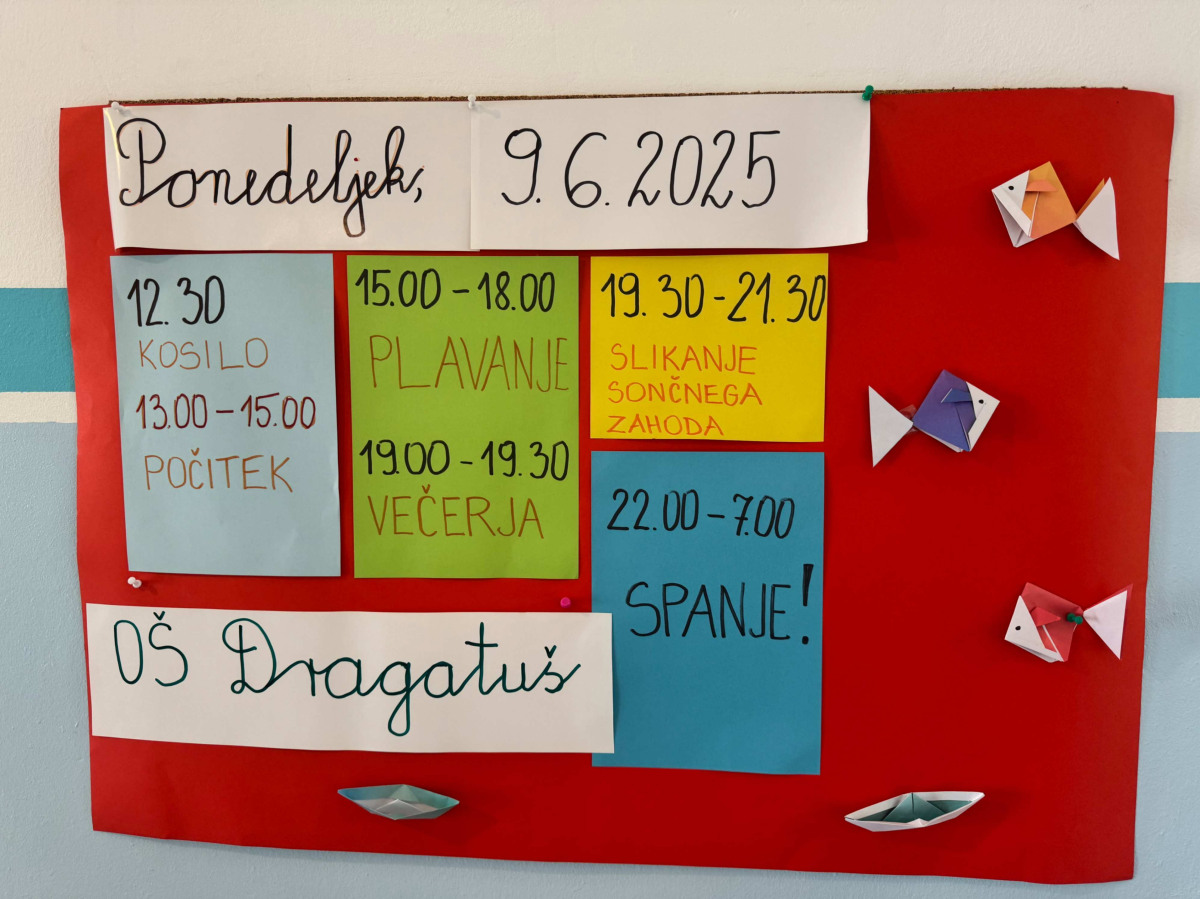 Ponedeljek, 9.6.2025
12.30
KOSILO
13.00-15.00
POČITEK
15.00-18.00
PLAVANJE
19.00-19.30
VEČERJA
19.30-21.30
SLIKANJE
SONČNEGA
ZAHODA
22.00-7.00
SPANJE!
OŠ Dragatuš